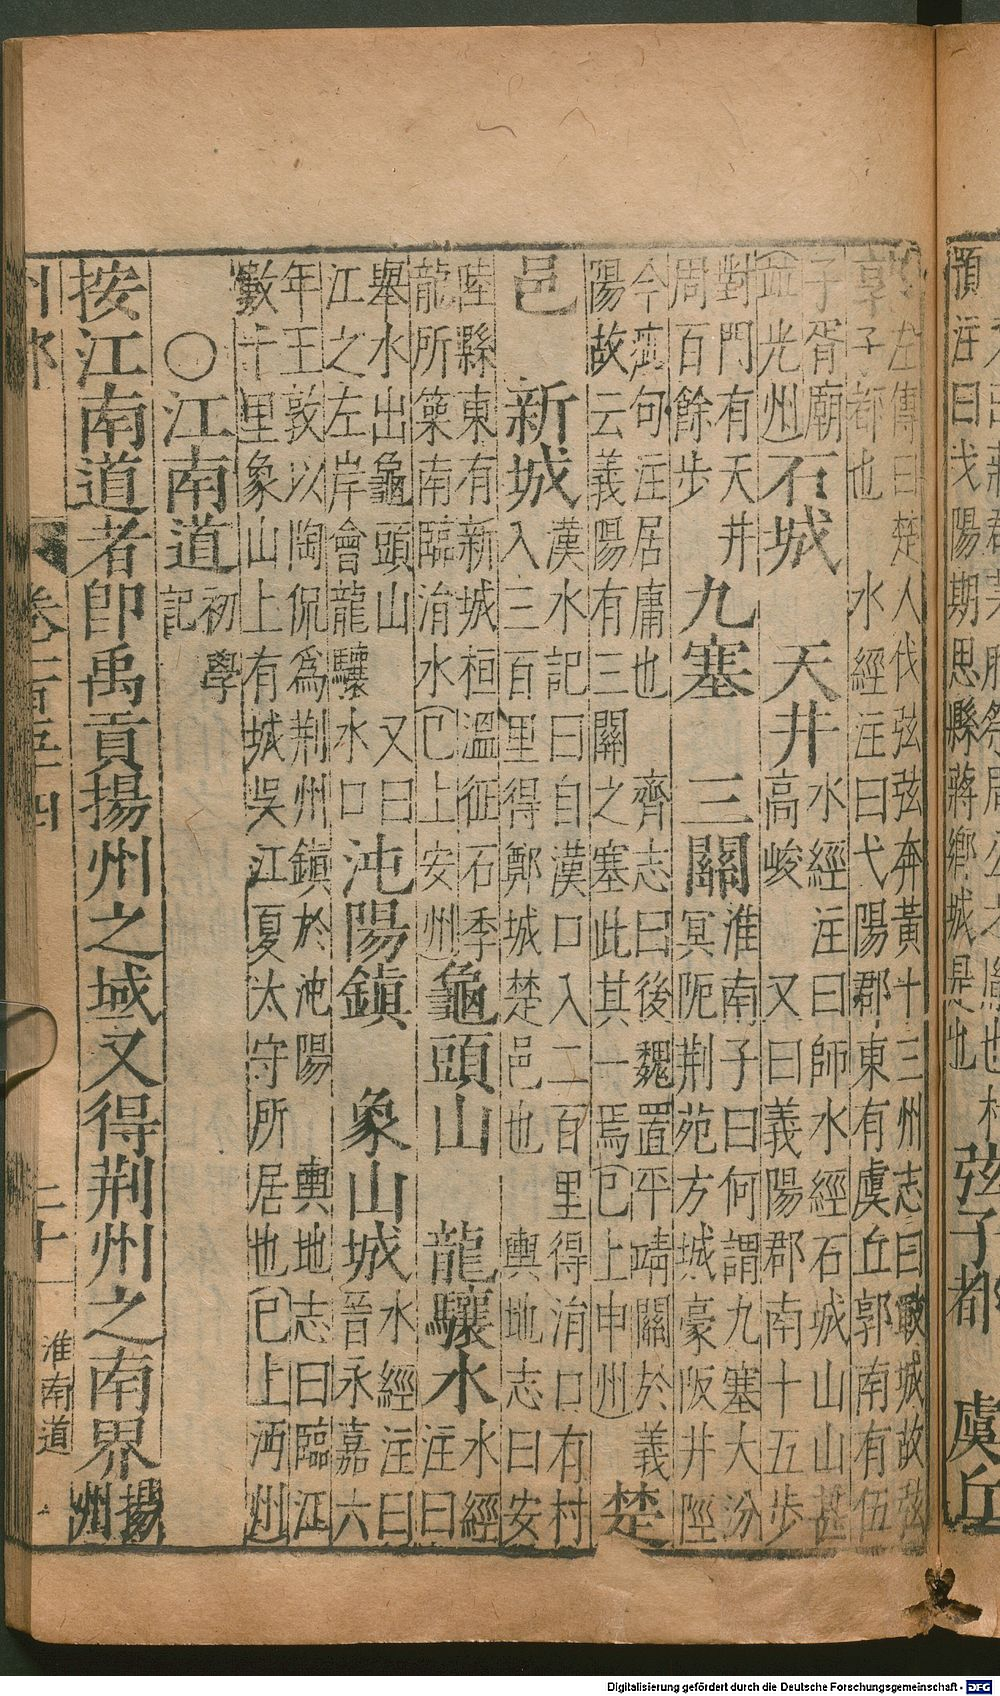 頴注曰戈陽期思縣蔣鄉城是也
弦子都　虞丘
左傳曰楚人伐弦弦奔黃十三州志曰敢城故弦
子都也　水經注曰弋陽郡東有虞丘郭南有伍
子胥廟
竝光州
石城　天井
水經注曰師水經石城山山甚
高峻　又曰義陽郡南十五步
對門有天井
周百餘步
九塞　三關
淮南子曰何謂九塞大汾
冥阨荆苑方城豪阪井陘
今疵句注居庸也　齊志曰後魏置平靖關於義
陽故云義陽有三關之塞此其一焉已上申州
楚
邑　新城
漢水記曰自漢口入二百里得涓口有村
入三百里得鄭城楚邑也　輿地志曰安
陸縣東有新城桓溫征石季
龍所築南臨涓水已上安州
龜頭山　龍驤水
水經
注曰
舉水出龜頭山　又曰
江之左岸會龍驤水口
沌陽鎮　象山城
水經注曰
晉永嘉六
年王敦以陶侃爲荆州鎮於沌陽　輿地志曰臨江
數千里象山上有城吳江夏太守所居也已上沔州
○江南道
初學
記
按江南道者卽禹貢揚州之域又得荆州之南界
揚
州
州郡　卷一百五十四　二十一　淮南道
Digitalisierung gefördert durch die Deutsche Forschungsgemeinschaft - DFG